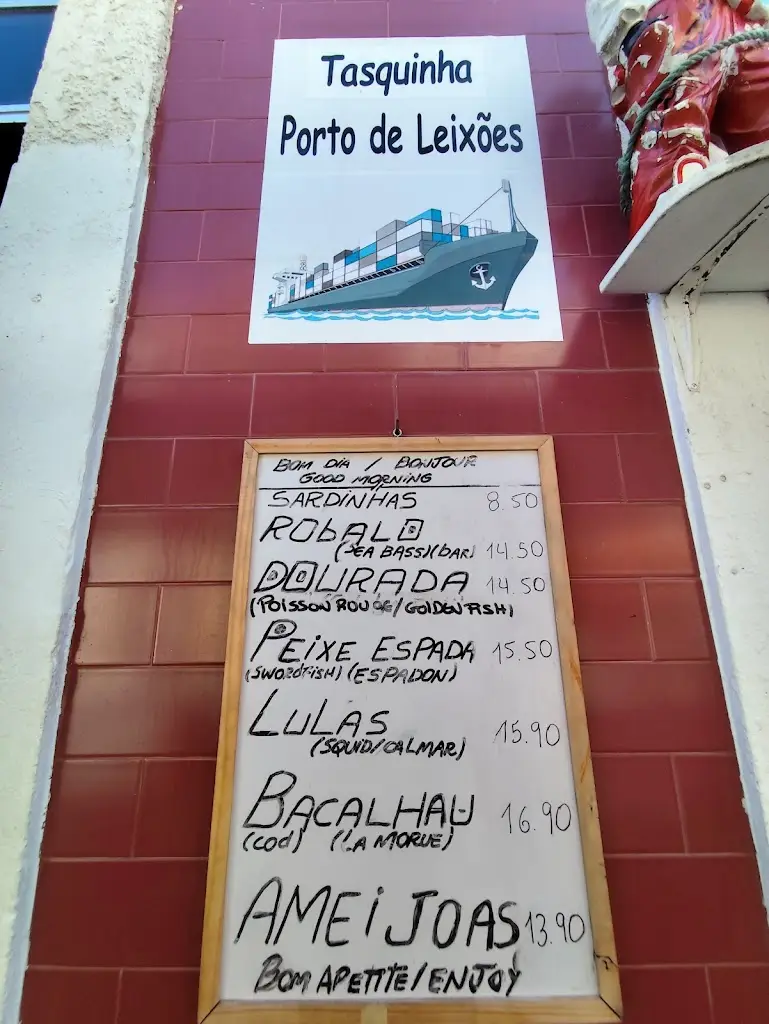 Tasquinha
Porto de Leixões
BOM DIA / BONJOUR
GOOD MORNING
SARDINHAS 8.50
ROBALO
(SEA BASS)(BAR) 14.50
DOURADA 14.50
(POISSON ROUGE/GOLDENFISH)
PEIXE ESPADA 15.50
(SWORDFISH) (ESPADON)
LULAS 15.90
(SQUID/CALMAR)
BACALHAU 16.90
(COD) (LA MORUE)
AMEIJOAS 13.90
BOM APETITE/ENJOY